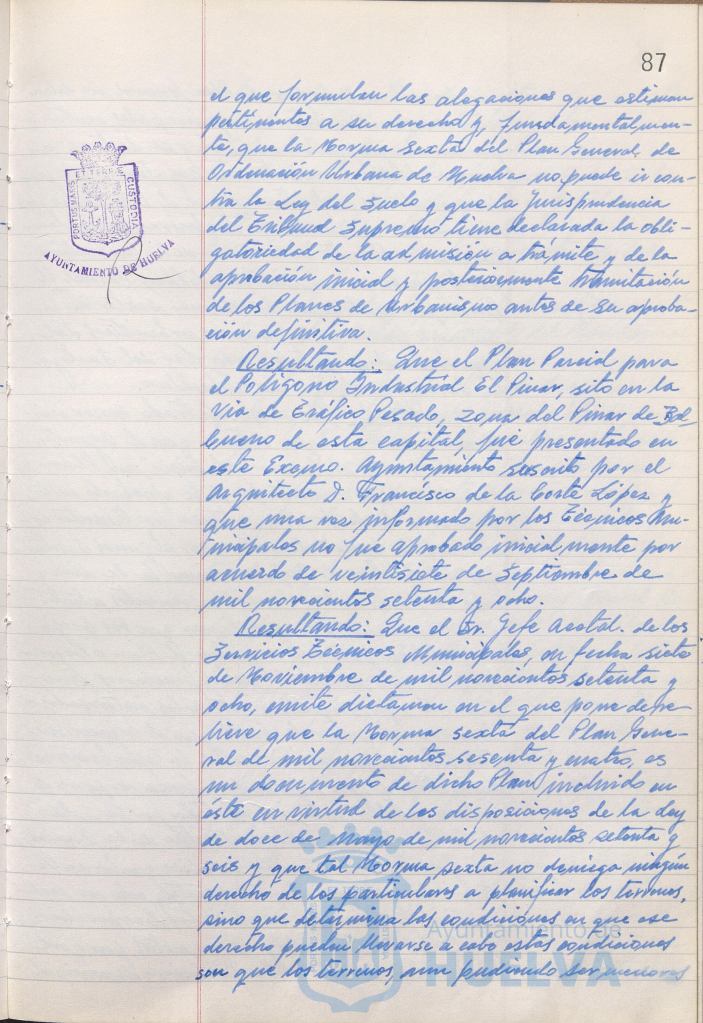 87
el que formulan las alegaciones que estiman
pertinentes a su derecho y, fundamentalmen-
te, que la Norma Sexta del Plan General de
Ordenación Urbana de Huelva no puede ir con-
tra la Ley del Suelo y que la Jurisprudencia
del Tribunal Supremo tiene declarada la obli-
gatoriedad de la admisión a trámite y de la
aprobación inicial y posteriormente tramitación
de los Planes de Urbanismo antes de su aproba-
ción definitiva.
Resultando: Que el Plan Parcial para
el Polígono Industrial El Pinar, sito en la
Vía de Tráfico Pesado, zona del Pinar de Bal-
bueno de esta capital, fue presentado en
este Excmo. Ayuntamiento suscrito por el
Arquitecto D. Francisco de la Corte López y
que una vez informado por los Técnicos Mu-
nicipales no fue aprobado inicialmente por
acuerdo de veintisiete de Septiembre de
mil novecientos setenta y ocho.
Resultando: Que el Sr. Gefe acctal. de los
Servicios Técnicos Municipales, en fecha siete
de Noviembre de mil novecientos setenta y
ocho, emite dictamen en el que pone de re-
lieve que la Norma sexta del Plan Gene-
ral de mil novecientos sesenta y cuatro, es
un documento de dicho Plan, incluido en
éste en virtud de las disposiciones de la Ley
de doce de Mayo de mil novecientos setenta y
seis y que tal Norma sexta no deniega ningún
derecho de los particulares a planificar los terrenos,
sino que determina las condiciones en que ese
derecho pueden llevarse a cabo estas condiciones
son que los terrenos, aun pudiendo ser menores
PORTUS MARIS ET TERRAE CUSTODIA
AYUNTAMIENTO DE HUELVA
Ayuntamiento de
HUELVA